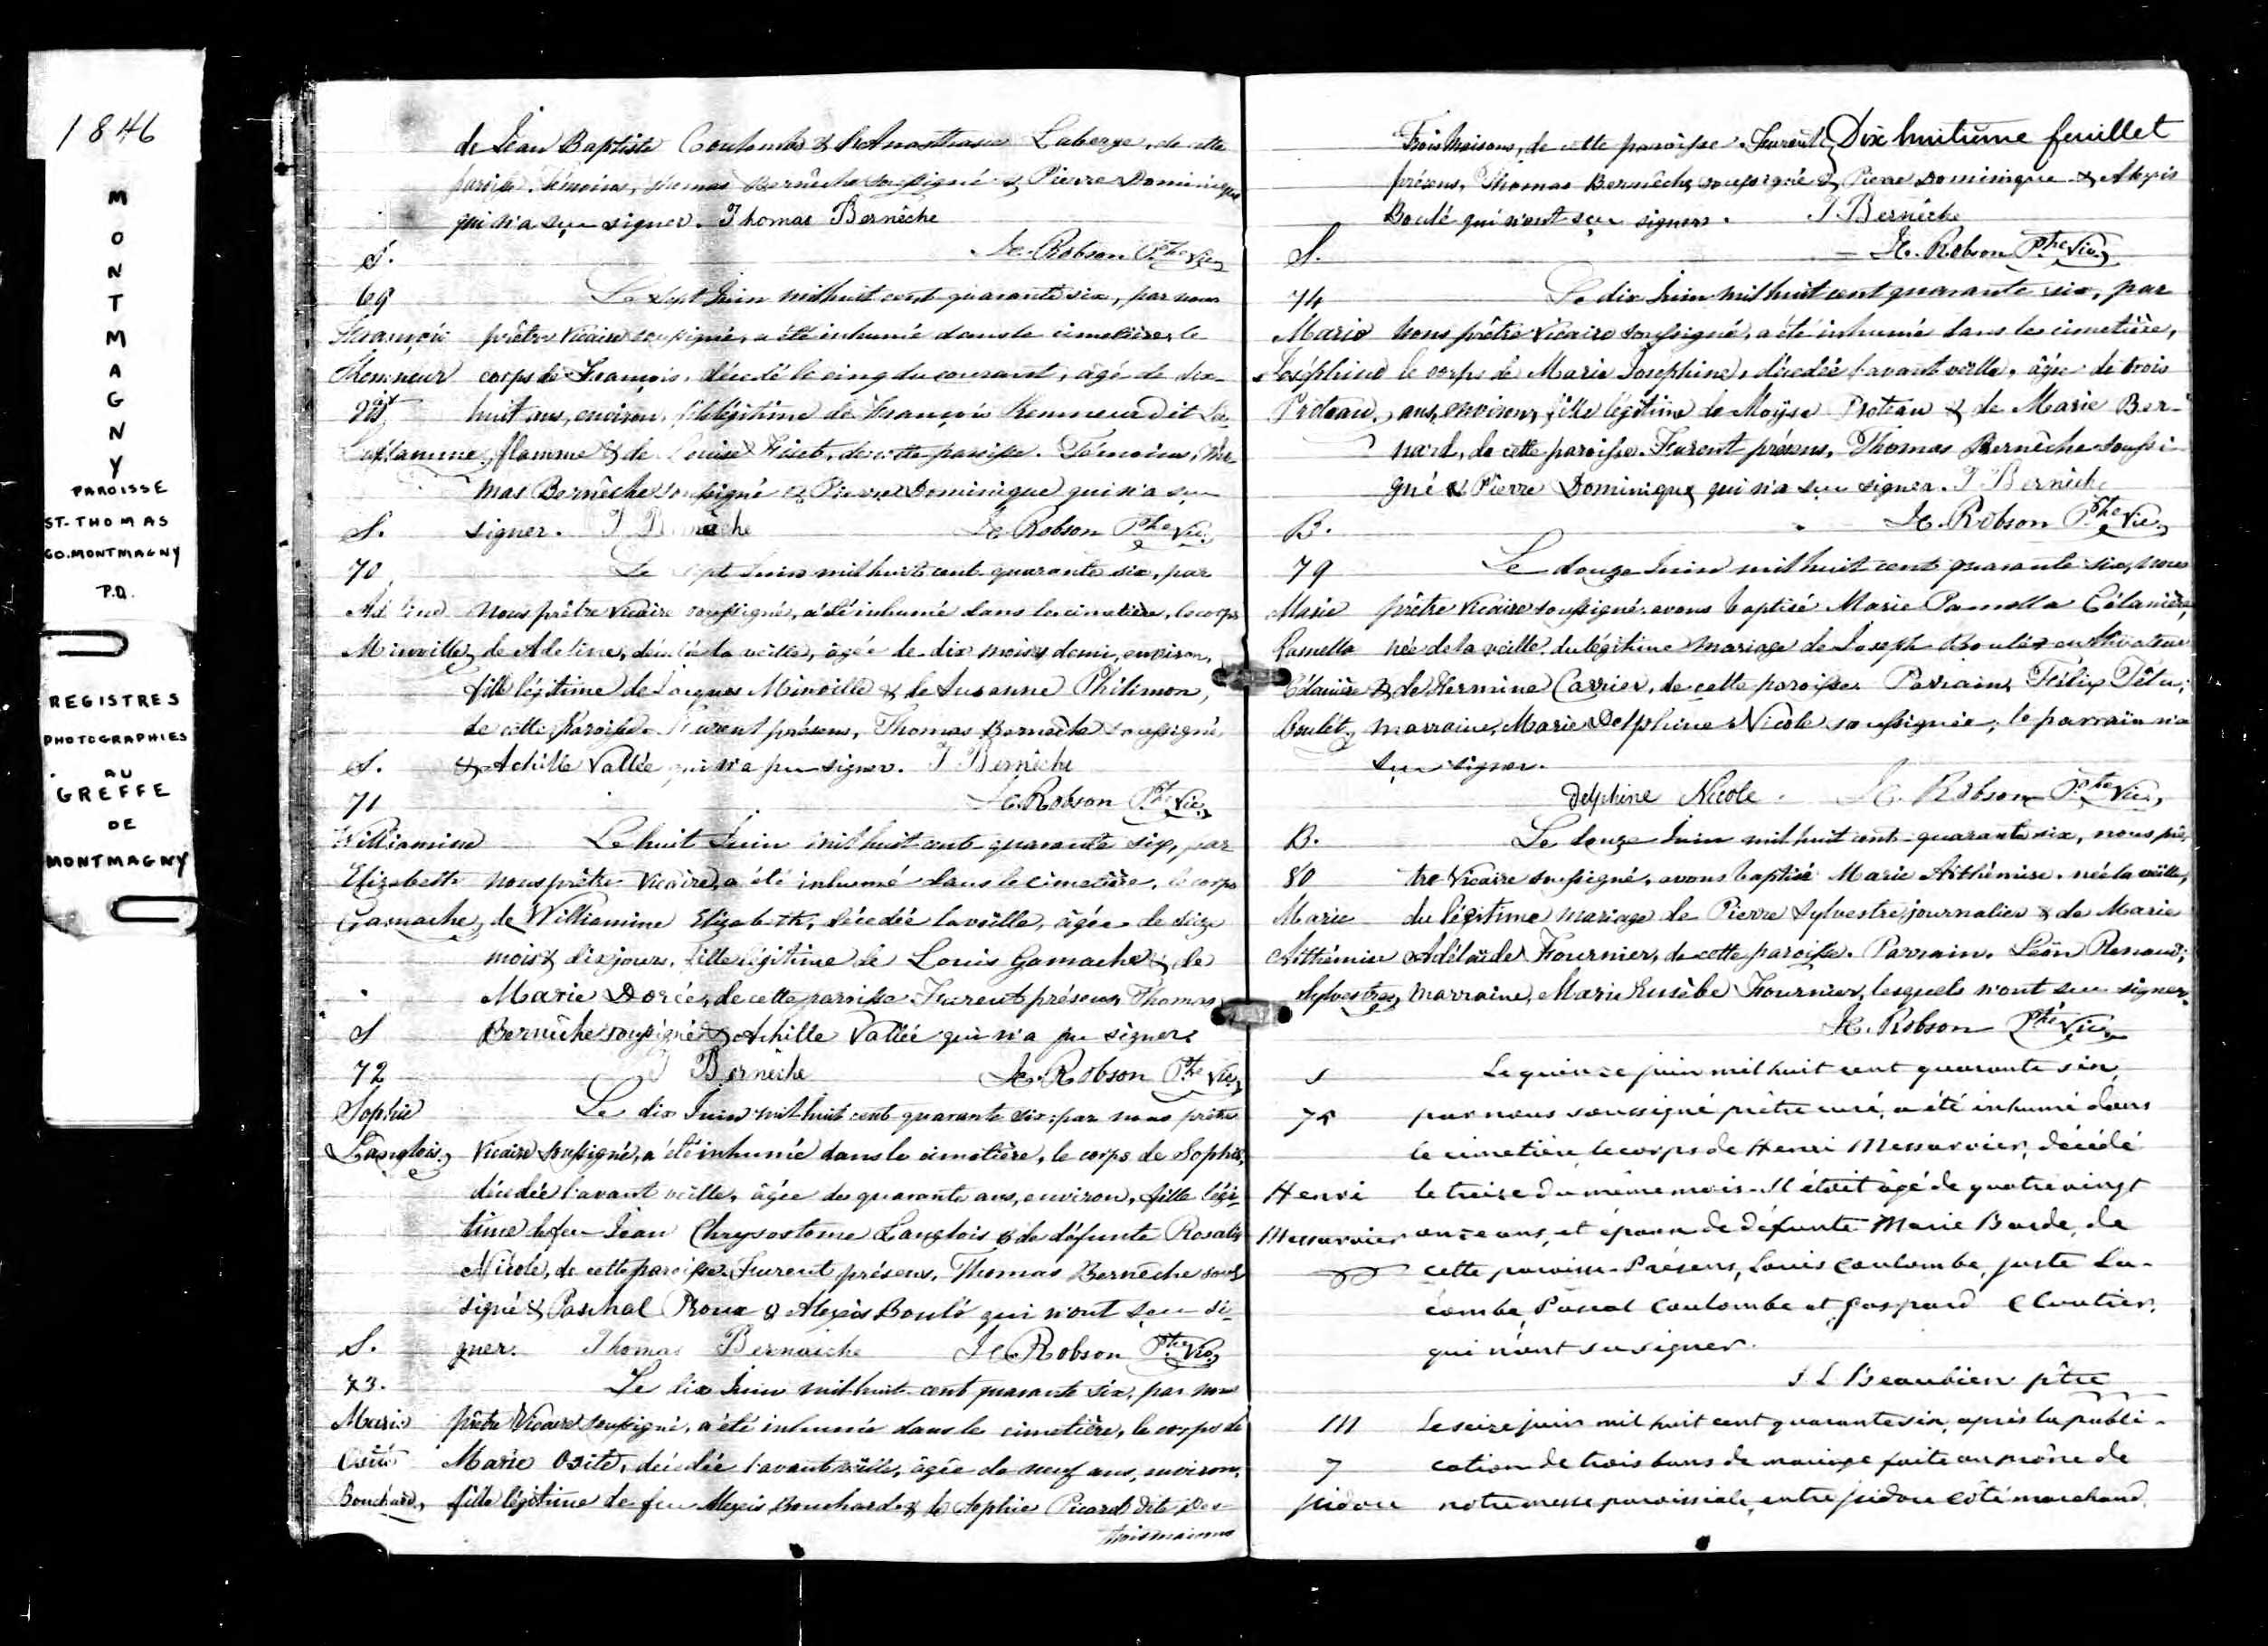 1846
MONTMAGNY
PAROISSE
ST-THOMAS
CO.MONTMAGNY
P.Q.
REGISTRES
PHOTOGRAPHIES
AU
GREFFE
DE
MONTMAGNY
de Jean Baptiste Coulombe & de Anasthasie Laberge, de cette
paroisse. Témoins, Thomas Bernêche soussigné & Pierre Dominique
qui n'a sçu signer. Thomas Bernêche
H. Robson Ptre Vic.
S.
69 Le sept Juin mil huit cent quarante six, par nous
François prêtre Vicaire soussigné, a été inhumé dans le cimetière, le
corps de François, décédé le cinq du courant, âgé de dix-
dit huit ans, environ, fils légitime de François dit La-
Laflamme, flamme & de Louise de cette paroisse. Témoins, Tho-
mas Bernêche soussigné & Pierre Dominique qui n'a sçu
S. signer. T Bernêche H. Robson Ptre Vic.
70 Le sept Juin mil huit cent quarante six, par
Adeline nous prêtre Vicaire soussigné, a été inhumé dans le cimetière, le corps
Minville, de Adeline, décédée la veille, âgée de dix mois & demi, environ,
fille légitime de Jacques Minville & de Susanne Philimon,
de cette Paroisse. Furent présens, Thomas Bernêche soussigné,
S. & Achille Vallée qui n'a pu signer. T Bernêche
71 H. Robson Ptre Vic.
Williamine Le huit Juin mil huit cent quarante six, par
Elizabeth nous prêtre Vicaire, a été inhumé dans le cimetière, le corps
Gamache, de Williamine Elizabeth, décédée la veille, âgée de
mois & dix jours, fille légitime de Louis Gamache & de
Marie Dorée, de cette paroisse. Furent présens Thomas
S Bernêche soussigné & Achille Vallée qui n'a pu signer.
72 T Bernêche H. Robson Ptre Vic.
Sophie Le dix Juin mil huit cent quarante six, par nous prêtre
Langlois, Vicaire soussigné, a été inhumé dans le cimetière, le corps de Sophie,
décédée l'avant veille, âgée de quarante ans, environ, fille légi-
time de feu Jean Chrysostome Langlois & de défunte Rosalie
Nicole, de cette paroisse. Furent présens, Thomas Bernêche sous-
signé & Paschal Proux & Alexis Boulé qui n'ont sçu si-
S. gner. Thomas Bernaiche H. Robson Ptre Vic.
73. Le dix Juin mil huit cent quarante six, par nous
Marie prêtre Vicaire soussigné, a été inhumée dans le cimetière, le corps de
Osite Marie Osite, décédée l'avant veille, âgée de neuf ans, environ,
Bouchard, fille légitime de feu Alexis Bouchard & de Sophie Picard dite Des-
trois maisons
Trois Maisons, de cette paroisse. Furent Dix huitième feuillet
présens, Thomas Bernêche soussigné & Pierre Dominique & Alexis
Boulé qui n'ont sçu signer. T Bernêche
S. H. Robson Ptre Vic.
74 Le dix Juin mil huit cent quarante six, par
Marie Nous prêtre Vicaire soussigné, a été inhumé dans le cimetière,
Joséphine le corps de Marie Josephine, décédée l'avant veille, âgée de trois
Proteau, ans, environ, fille légitime de Moÿse Proteau & de Marie Ber-
nard, de cette paroisse. Furent présens, Thomas Bernêche soussi-
gné & Pierre Dominique qui n'a sçu signer. T Bernêche
B. H. Robson Ptre Vic.
79 Le douze Juin mil huit cent quarante six, nous
Marie prêtre Vicaire soussigné avons baptisé Marie Pamella Célanière,
Pamella née de la veille du légitime mariage de Joseph Boulet cultivateur
Célanière & de Hermine Carrier, de cette paroisse. Parrain, Félix Têtu;
Boulet, marraine, Marie Delphine Nicole soussignée; le parrain n'a
sçu signer.
Delphine Nicole. H. Robson Ptre Vic.
B. Le douze Juin mil huit cent quarante six, nous prê-
80 tre Vicaire soussigné, avons baptisé Marie Arthémise, née la veille,
Marie du légitime mariage de Pierre Sylvestre journalier & de Marie
Arthémise Adélaïde Fournier, de cette paroisse. Parrain, Léon Renaud;
Sylvestre, marraine, Marie Eusèbe Fournier, lesquels n'ont sçu signer.
H. Robson Ptre Vic.
S Le quinze juin mil huit cent quarante six,
75 par nous soussigné prêtre curé, a été inhumé dans
le cimetière le corps de Henri Messarvier, décédé
Henri le treize du même mois. Il était âgé de quatre vingt
Messarvier onze ans, et époux de défunte Marie Barde, de
cette paroisse. Présens, Louis Coulombe, juste La-
combe, Pascal Coulombe et Gaspard Cloutier,
qui n'ont su signer.
J L Beaubien ptre
M Le seize juin mil huit cent quarante six, après la publi-
7 cation de trois bans de mariage faite au prône de
Isidore notre messe paroissiale, entre Isidore Côté marchand